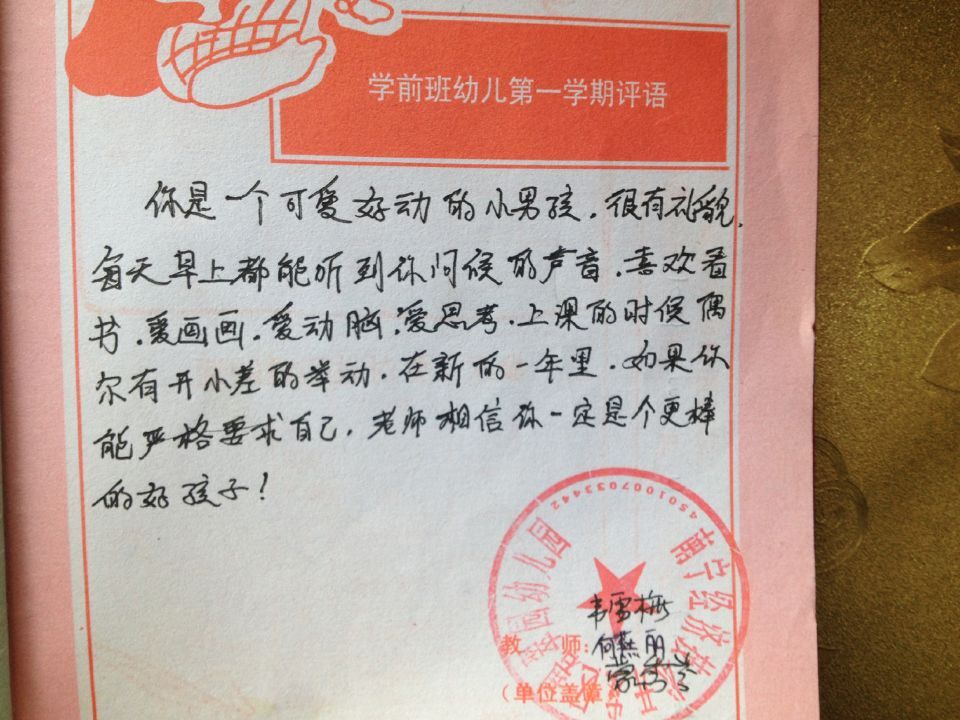 学前班幼儿第一学期评语
你是一个可爱好动的小男孩,很有礼貌,
每天早上都能听到你问候的声音,喜欢看
书,爱画画,爱动脑,爱思考,上课的时候偶
尔有开小差的举动,在新的一年里,如果你
能严格要求自己,老师相信你一定是个更棒
的好孩子!
4501007033442
南宁经济技术开
幼儿园
韦雪梅
教 师:何燕丽
(单位盖章)